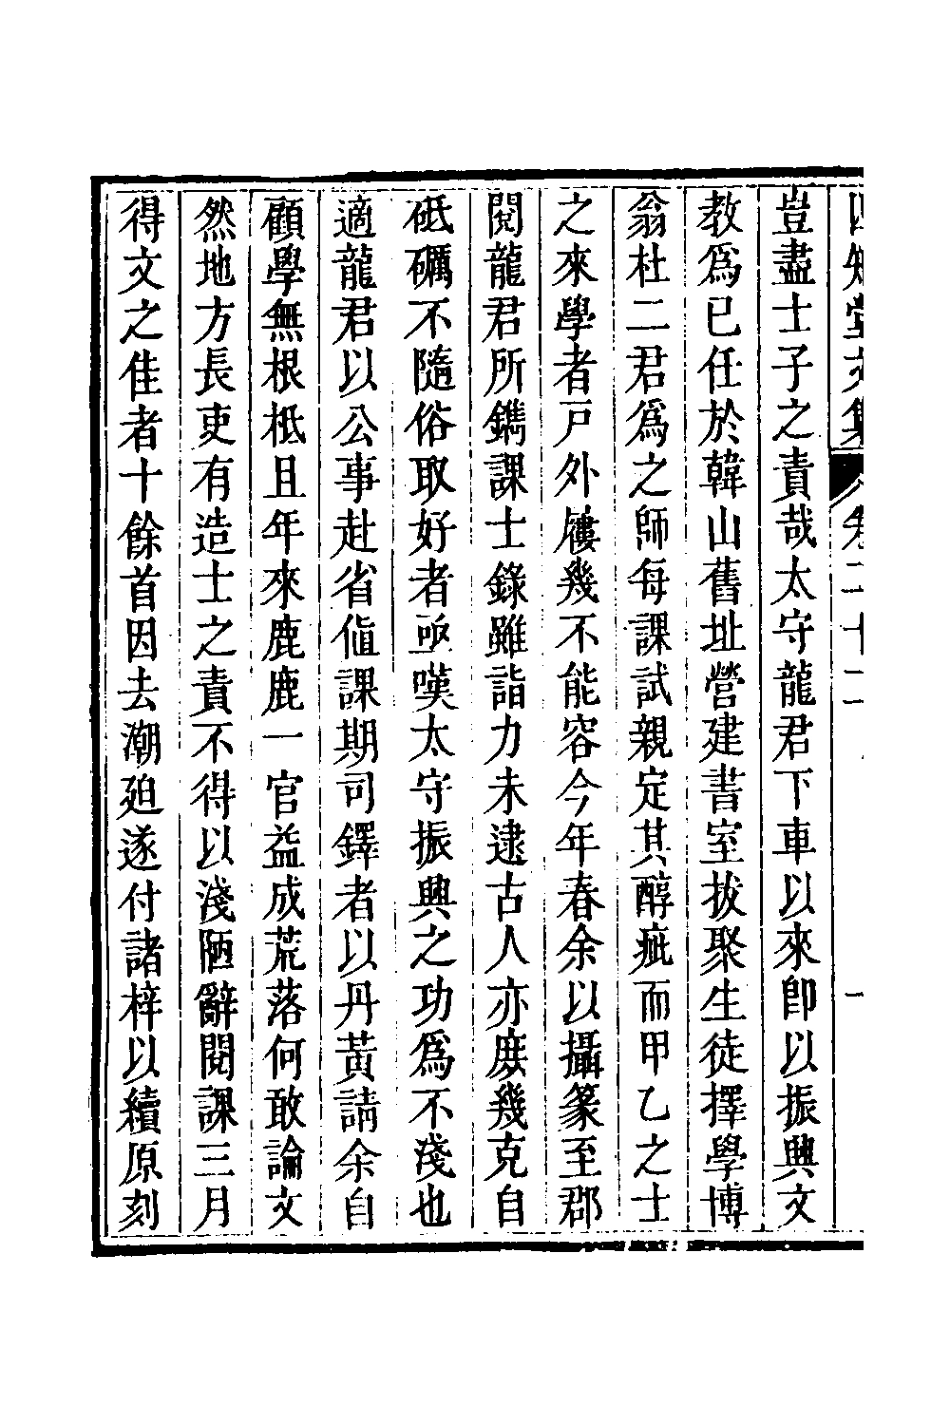 四知堂文集 卷二十二 一
豈盡士子之責哉太守龍君下車以來卽以振興文
教爲已任於韓山舊址營建書室拔聚生徒擇學博
翁杜二君爲之師每課試親定其醇疵而甲乙之士
之來學者戸外屨幾不能容今年春余以攝篆至郡
閱龍君所鐫課士錄雖詣力未逮古人亦庶幾克自
砥礪不隨俗取好者亟嘆太守振興之功爲不淺也
適龍君以公事赴省値課期司鐸者以丹黃請余自
顧學無根柢且年來鹿鹿一官益成荒落何敢論文
然地方長吏有造士之責不得以淺陋辭閱課三月
得文之佳者十餘首因去潮廹遂付諸梓以續原刻